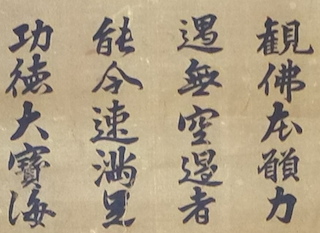 觀佛本願力
遇無空過者
能令速滿足
功德大寶海